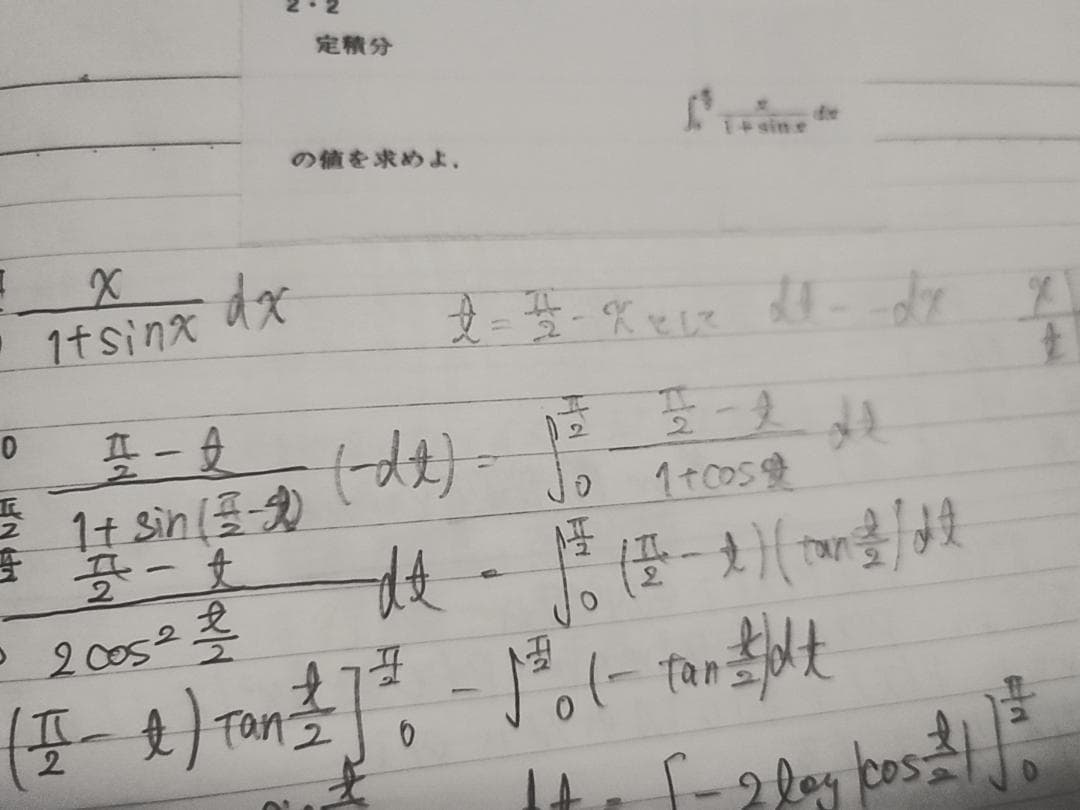 2・2
定積分
∫ x/(1+sin x) dx
の値を求めよ.
x/(1+sinx) dx t = π/2 - x として dt = -dx x
t
0 (π/2 - t)/(1+sin(π/2 - t)) (-dt) = ∫_0^{π/2} (π/2 - t)/(1+cos t) dt
π/2
π/2 (π/2 - t)/(2cos² t/2) dt = ∫_0^{π/2} (π/2 - t)(tan t/2) dt
(π/2 - t) tan t/2]_0^{π/2} - ∫_0^{π/2} (- tan t/2) dt
t dt = [-2log|cos t/2|]_0^{π/2}